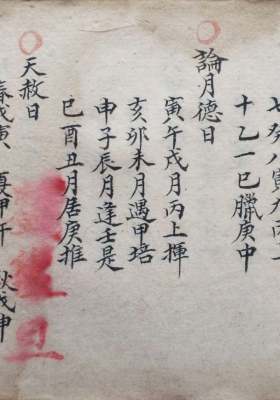 七癸八寅九丙
十乙一巳臘庚中
論月德日
寅午戌月丙上揮
亥卯未月遇甲培
申子辰月逢壬是
巳酉丑月居庚推
天赦日
春戊寅 夏甲午 秋戊申